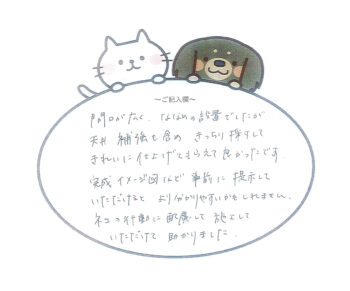 〜ご記入欄〜
間口が広く、ななめの設置でしたが
天井 補強も含め きっちり採寸して
きれいに仕上げてもらえて良かったです。
完成イメージ図など 事前に 提示して
いただけると より分かりやすいかもしれません。
ネコの行動に配慮して 施工して
いただけて 助かりました。